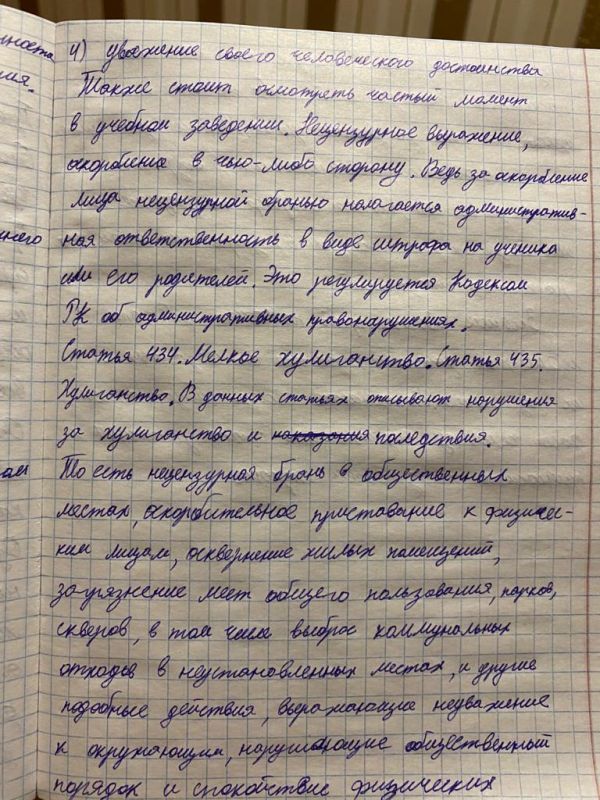 4) уважение своего человеческого достоинства
Также стоит осмотреть частый момент
в учебном заведении. Нецензурное выражение,
оскорбление в чью-либо сторону. Ведь за оскорбление
лица нецензурной бранью налагается административ-
ная ответственность в виде штрафа на ученика
или его родителей. Это регулируется Кодексом
РК об административных правонарушениях.
Статья 434. Мелкое хулиганство. Статья 435.
Хулиганство. В данных статьях описывают нарушения
за хулиганство и наказания последствия.
То есть нецензурная брань в общественных
местах, оскорбительное приставание к физичес-
ким лицам, осквернение жилых помещений,
загрязнение мест общего пользования, парков,
скверов, в том числе выброс коммунальных
отходов в неустановленных местах, и другие
подобные действия, выражающие неуважение
к окружающим, нарушающие общественный
порядок и спокойствие физических